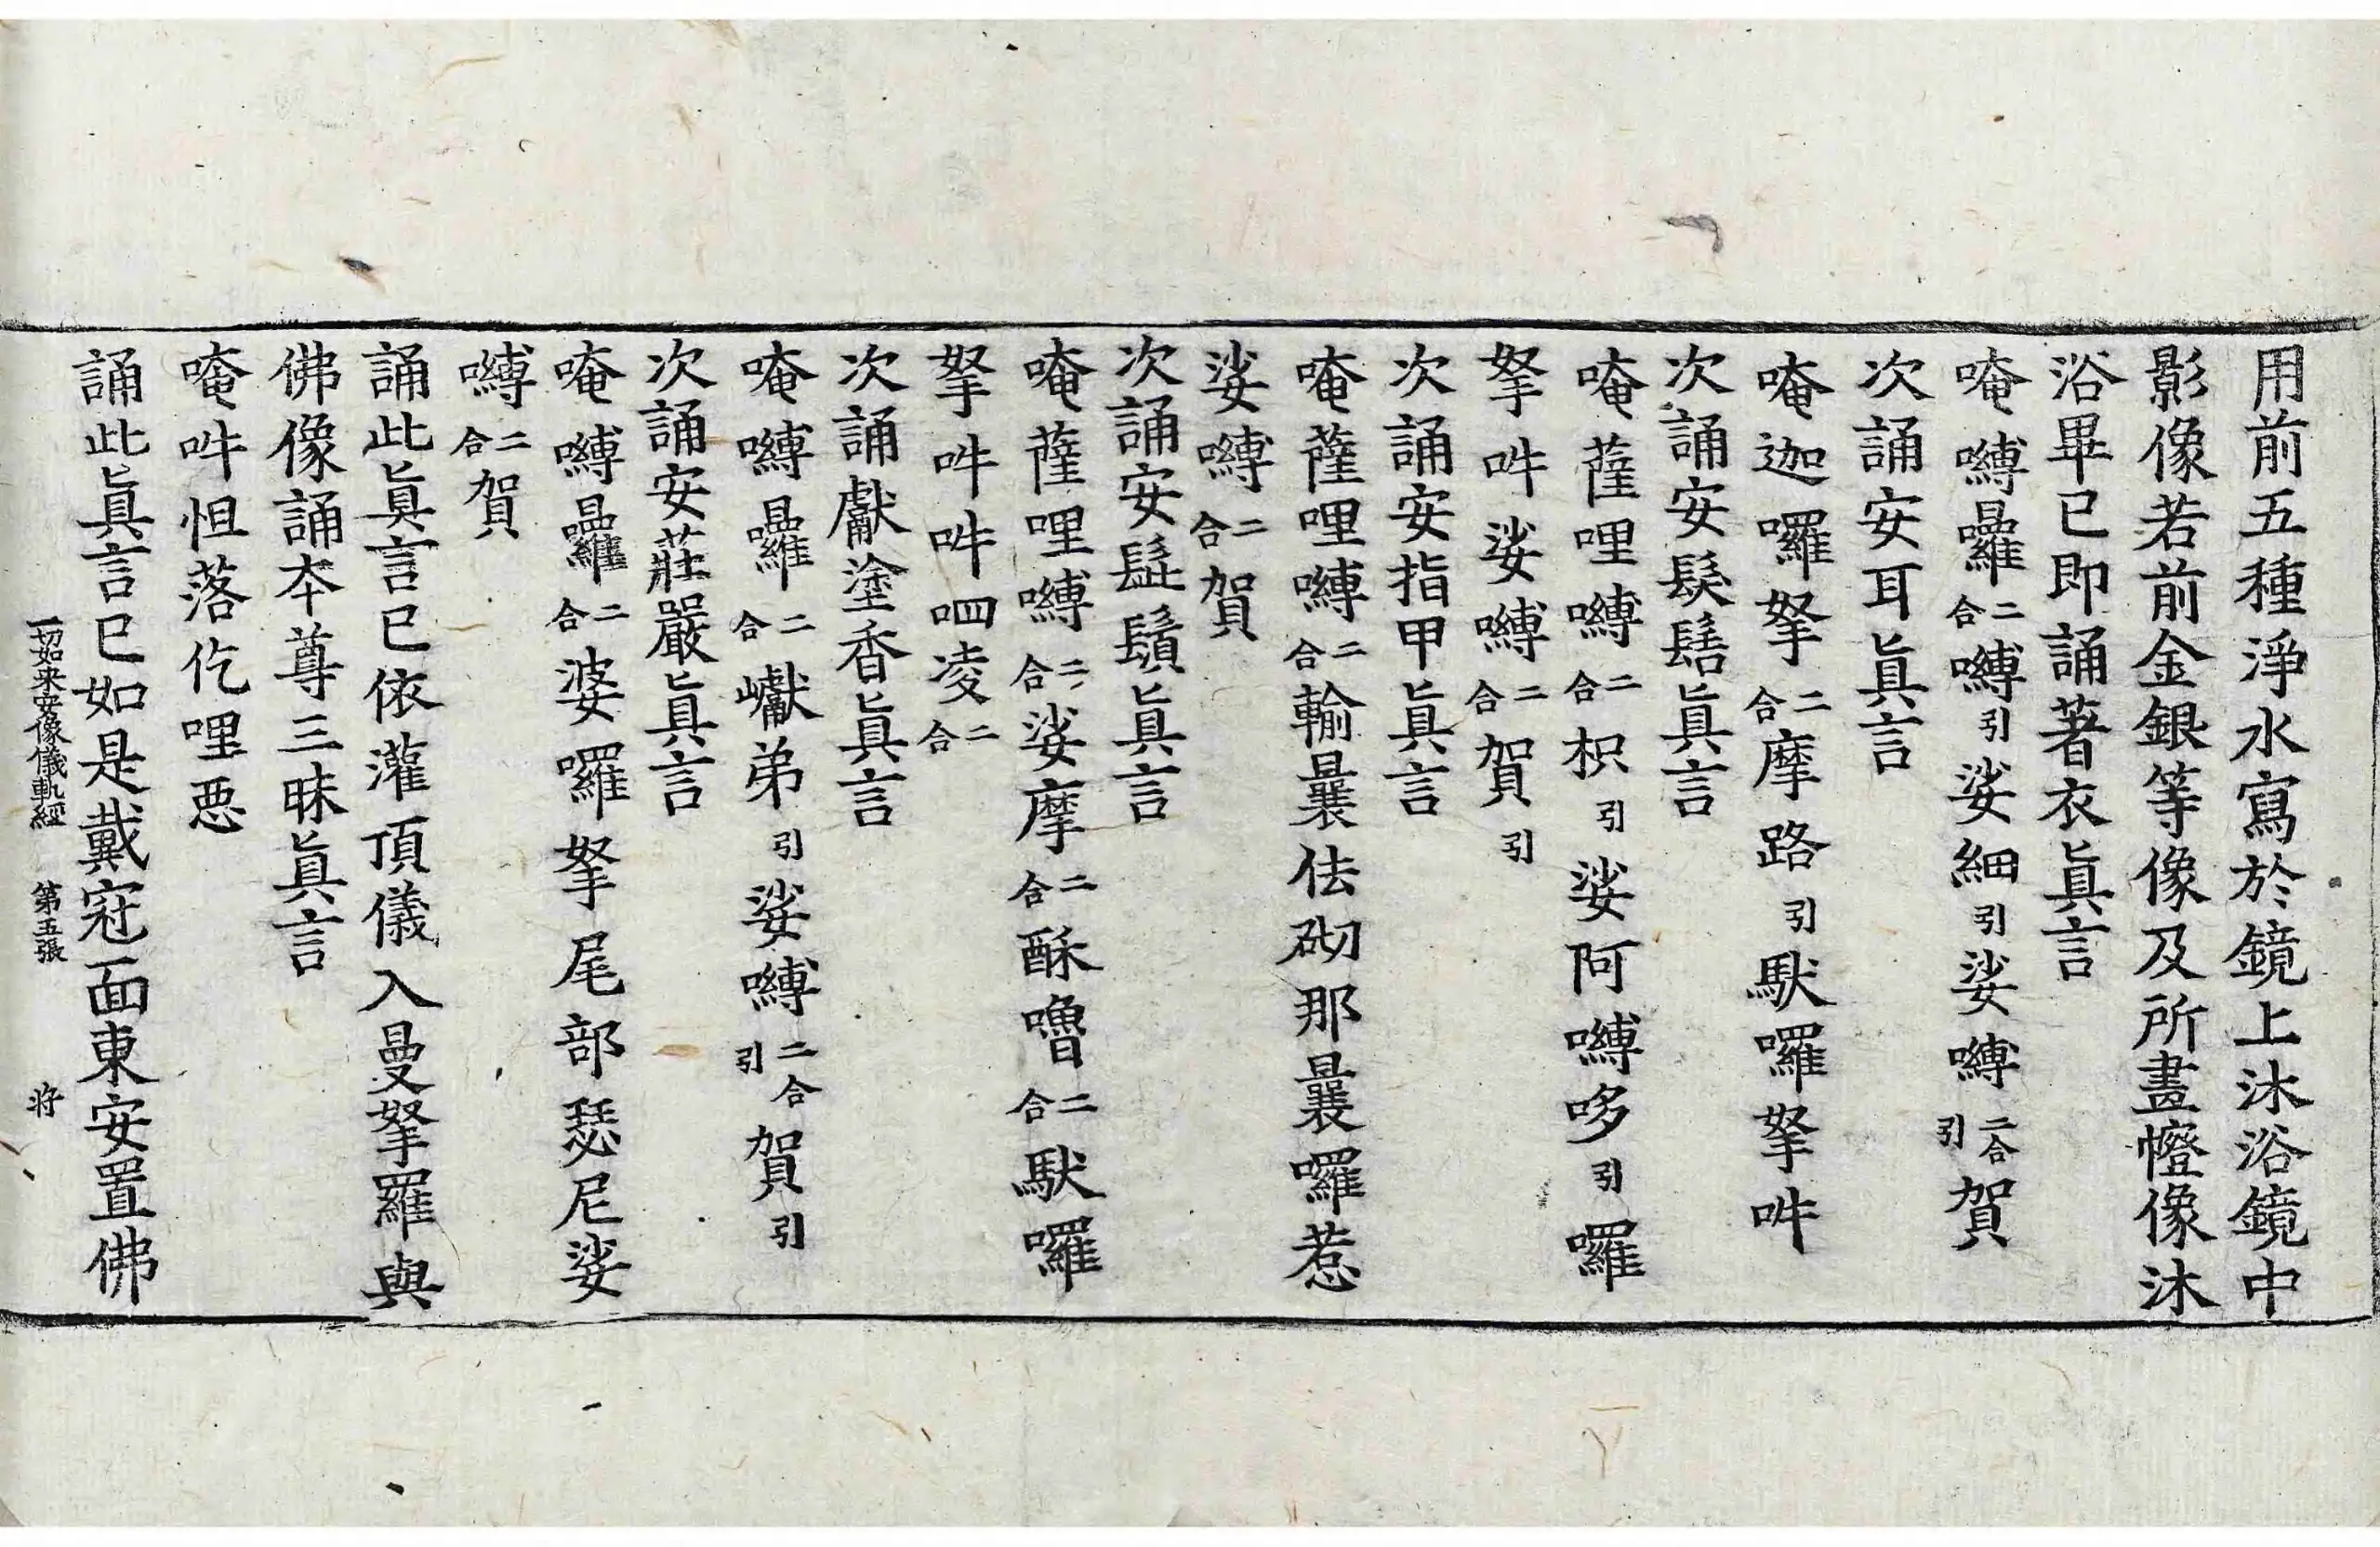 用前五種淨水寫於鏡上沐浴鏡中
影像若前金銀等像及所畫㡧像沐
浴畢已即誦著衣眞言
唵嚩曩囉二合嚩引娑細引娑嚩二合引賀
次誦安耳眞言
唵迦囉拏二合摩路引䭾囉拏吽
次誦安髮髻眞言
唵薩哩嚩二合枳引娑阿嚩哆引囉
拏吽娑嚩二合賀引
次誦安指甲眞言
唵薩哩嚩二合輸曩佉砌那曩囉惹
娑嚩二合賀
次誦安髭鬚眞言
唵薩哩嚩二合娑摩二合酥嚕二合䭾囉
拏吽吽呬凌二合
次誦獻塗香眞言
唵嚩囉二合巘弟引娑嚩二合引賀引
次誦安莊嚴眞言
唵嚩囉二合婆囉拏尾部瑟尼娑
嚩二合賀
誦此眞言已依灌頂儀入曼拏羅與
佛像誦本尊三昧眞言
唵吽怛落仡哩惡
誦此眞言已如是戴冠面東安置佛
一切如来安像儀軌經 第五張 将